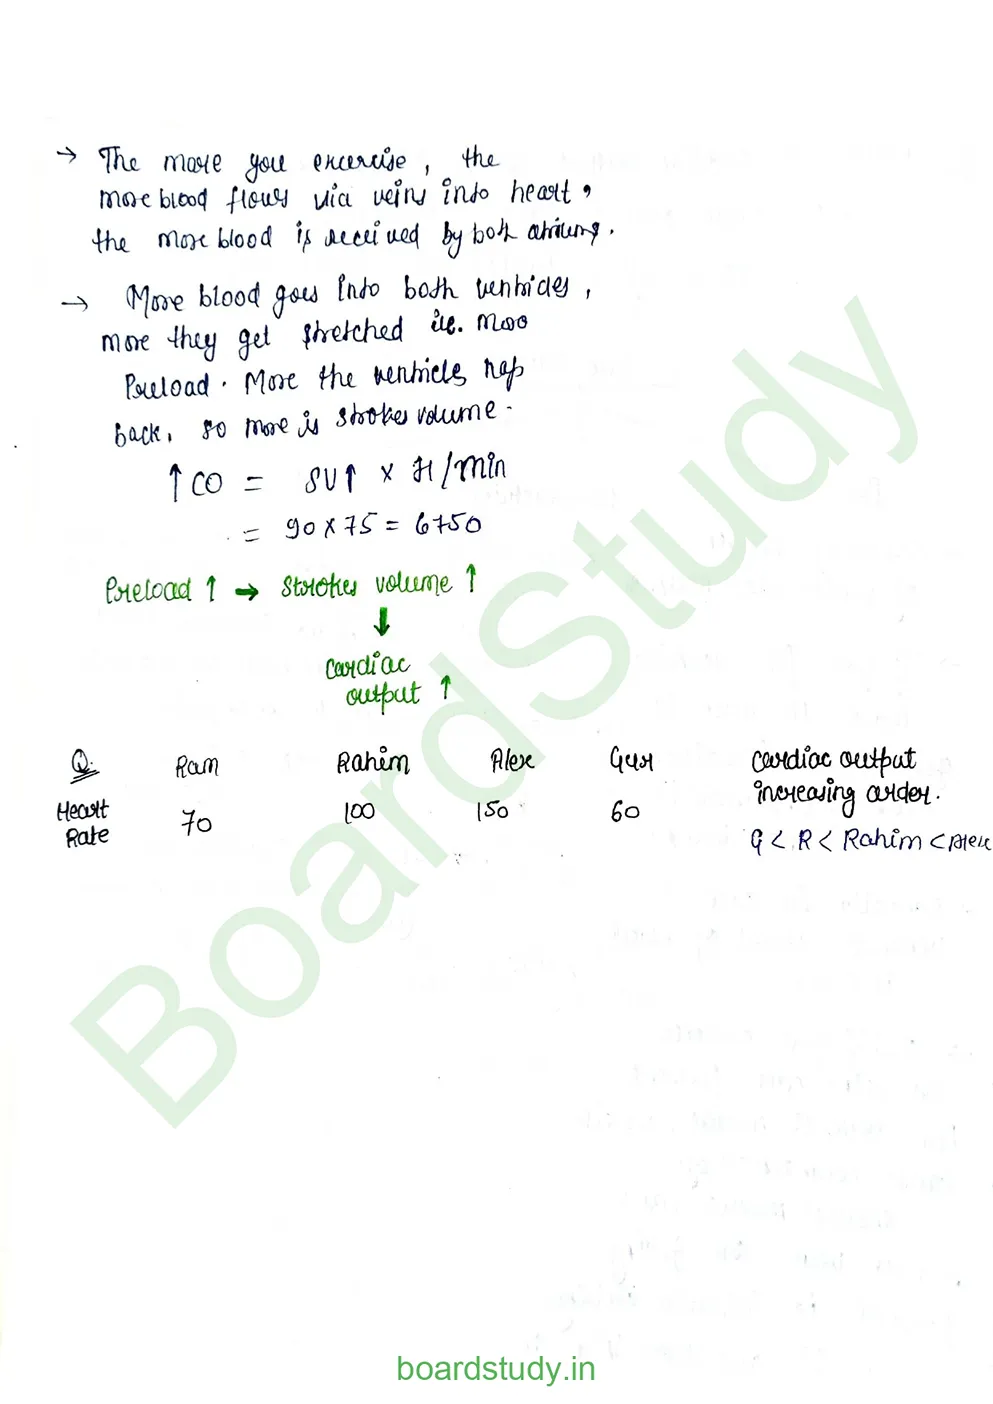 → The more you excercise, the
more blood flows via veins into heart,
the more blood is received by both atriums.
→ More blood goes into both ventricles,
more they get stretched i.e. more
Preload. More the ventricles
back, so more is strokes volume.
↑ CO = SV↑ × H/min
= 90 × 75 = 6750
Preload ↑ → Strokes volume ↑
↓
Cardiac
output ↑
Q. Ram Rahim Alex Gur Cardiac output
increasing order.
Heart Rate 70 100 150 60
G < R < Rahim < Alex
BoardStudy
boardstudy.in